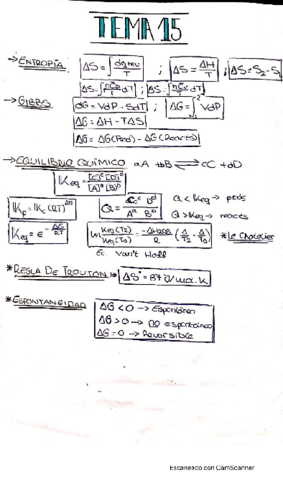 TEMA 15
→ ENTROPÍA ΔS = ∫ dq rev / T ; ΔS = ΔH / T ; ΔS = S₂ - S₁
ΔS = ∫ nCp/T dT ; ΔS = ∫ nCv/T dT
→ GIBBS dG = VdP - SdT ; ΔG = ∫₁² VdP
ΔG = ΔH - TΔS
ΔG = ΔG(Prod) - ΔG(Reacts)
→ EQUILIBRIO QUÍMICO aA + bB ⇌ cC + dD
Keq = [C]ᶜ [D]ᴰ / [A]ᵃ [B]ᵇ
Q < Keq → prods
Q > Keq → reacts
Kp = Kc (RT)^Δn
Keq = e^(-ΔG/RT)
* Le Chatelier
Ec. Van't Hoff
* REGLA DE TROUTON → ΔS = 87 J/mol.K
* ESPONTANEIDAD
ΔG < 0 → Espontáneo
ΔG > 0 → no espontáneo
ΔG = 0 → Reversible
Escaneado con CamScanner